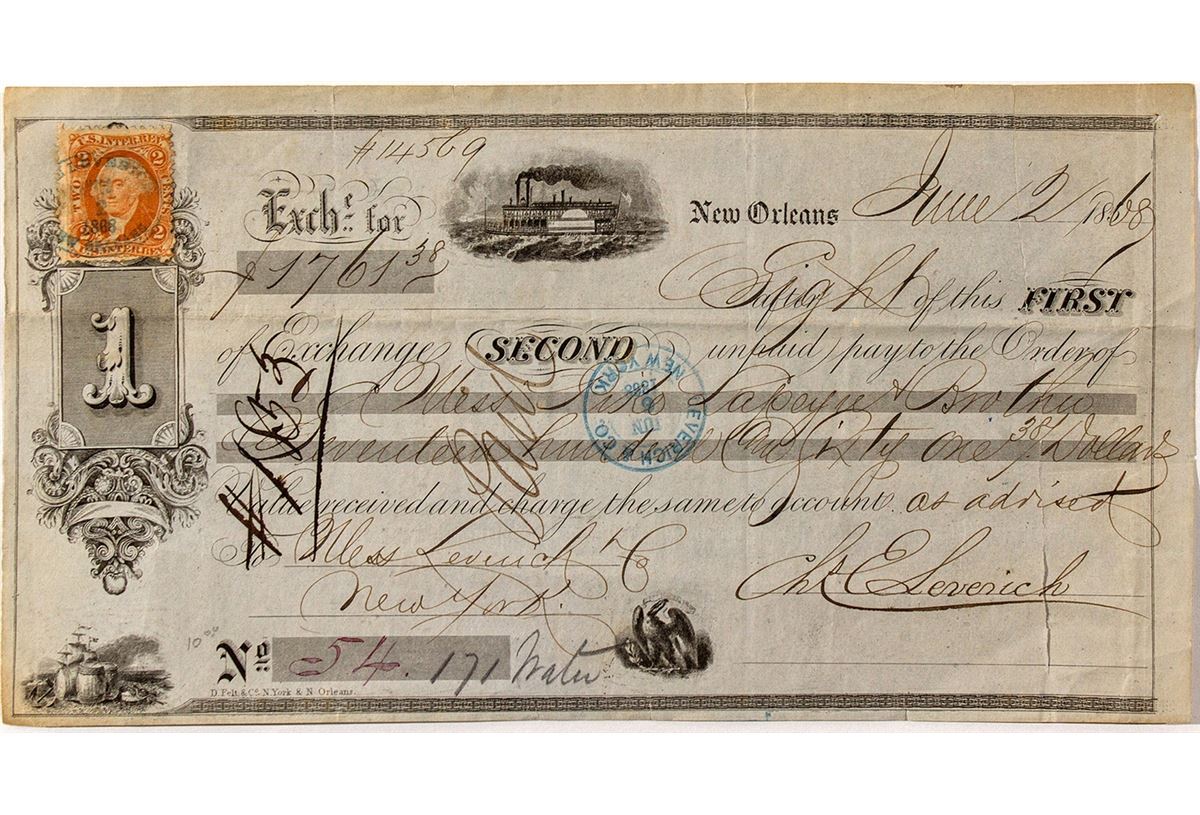 U.S. INTER. REV.
2 2
TWO CENTS
2 2
#14569
Exch.e for
New Orleans June 2 1868
$1761 38/
Sight of this FIRST
1
of Exchange (SECOND unpaid) pay to the Order of
Mess Lapeyre & Brother
Seventeen hundred and Sixty one 38/ Dollars
Paid
LEVERICH & CO.
JUN
1868
NEW YORK
Value received and charge the same to account as advised
To Mess Leverich & Co
New York
Chs E Leverich
10 00
No 54. 171 Water
D. Felt & Co. N. York & N. Orleans.